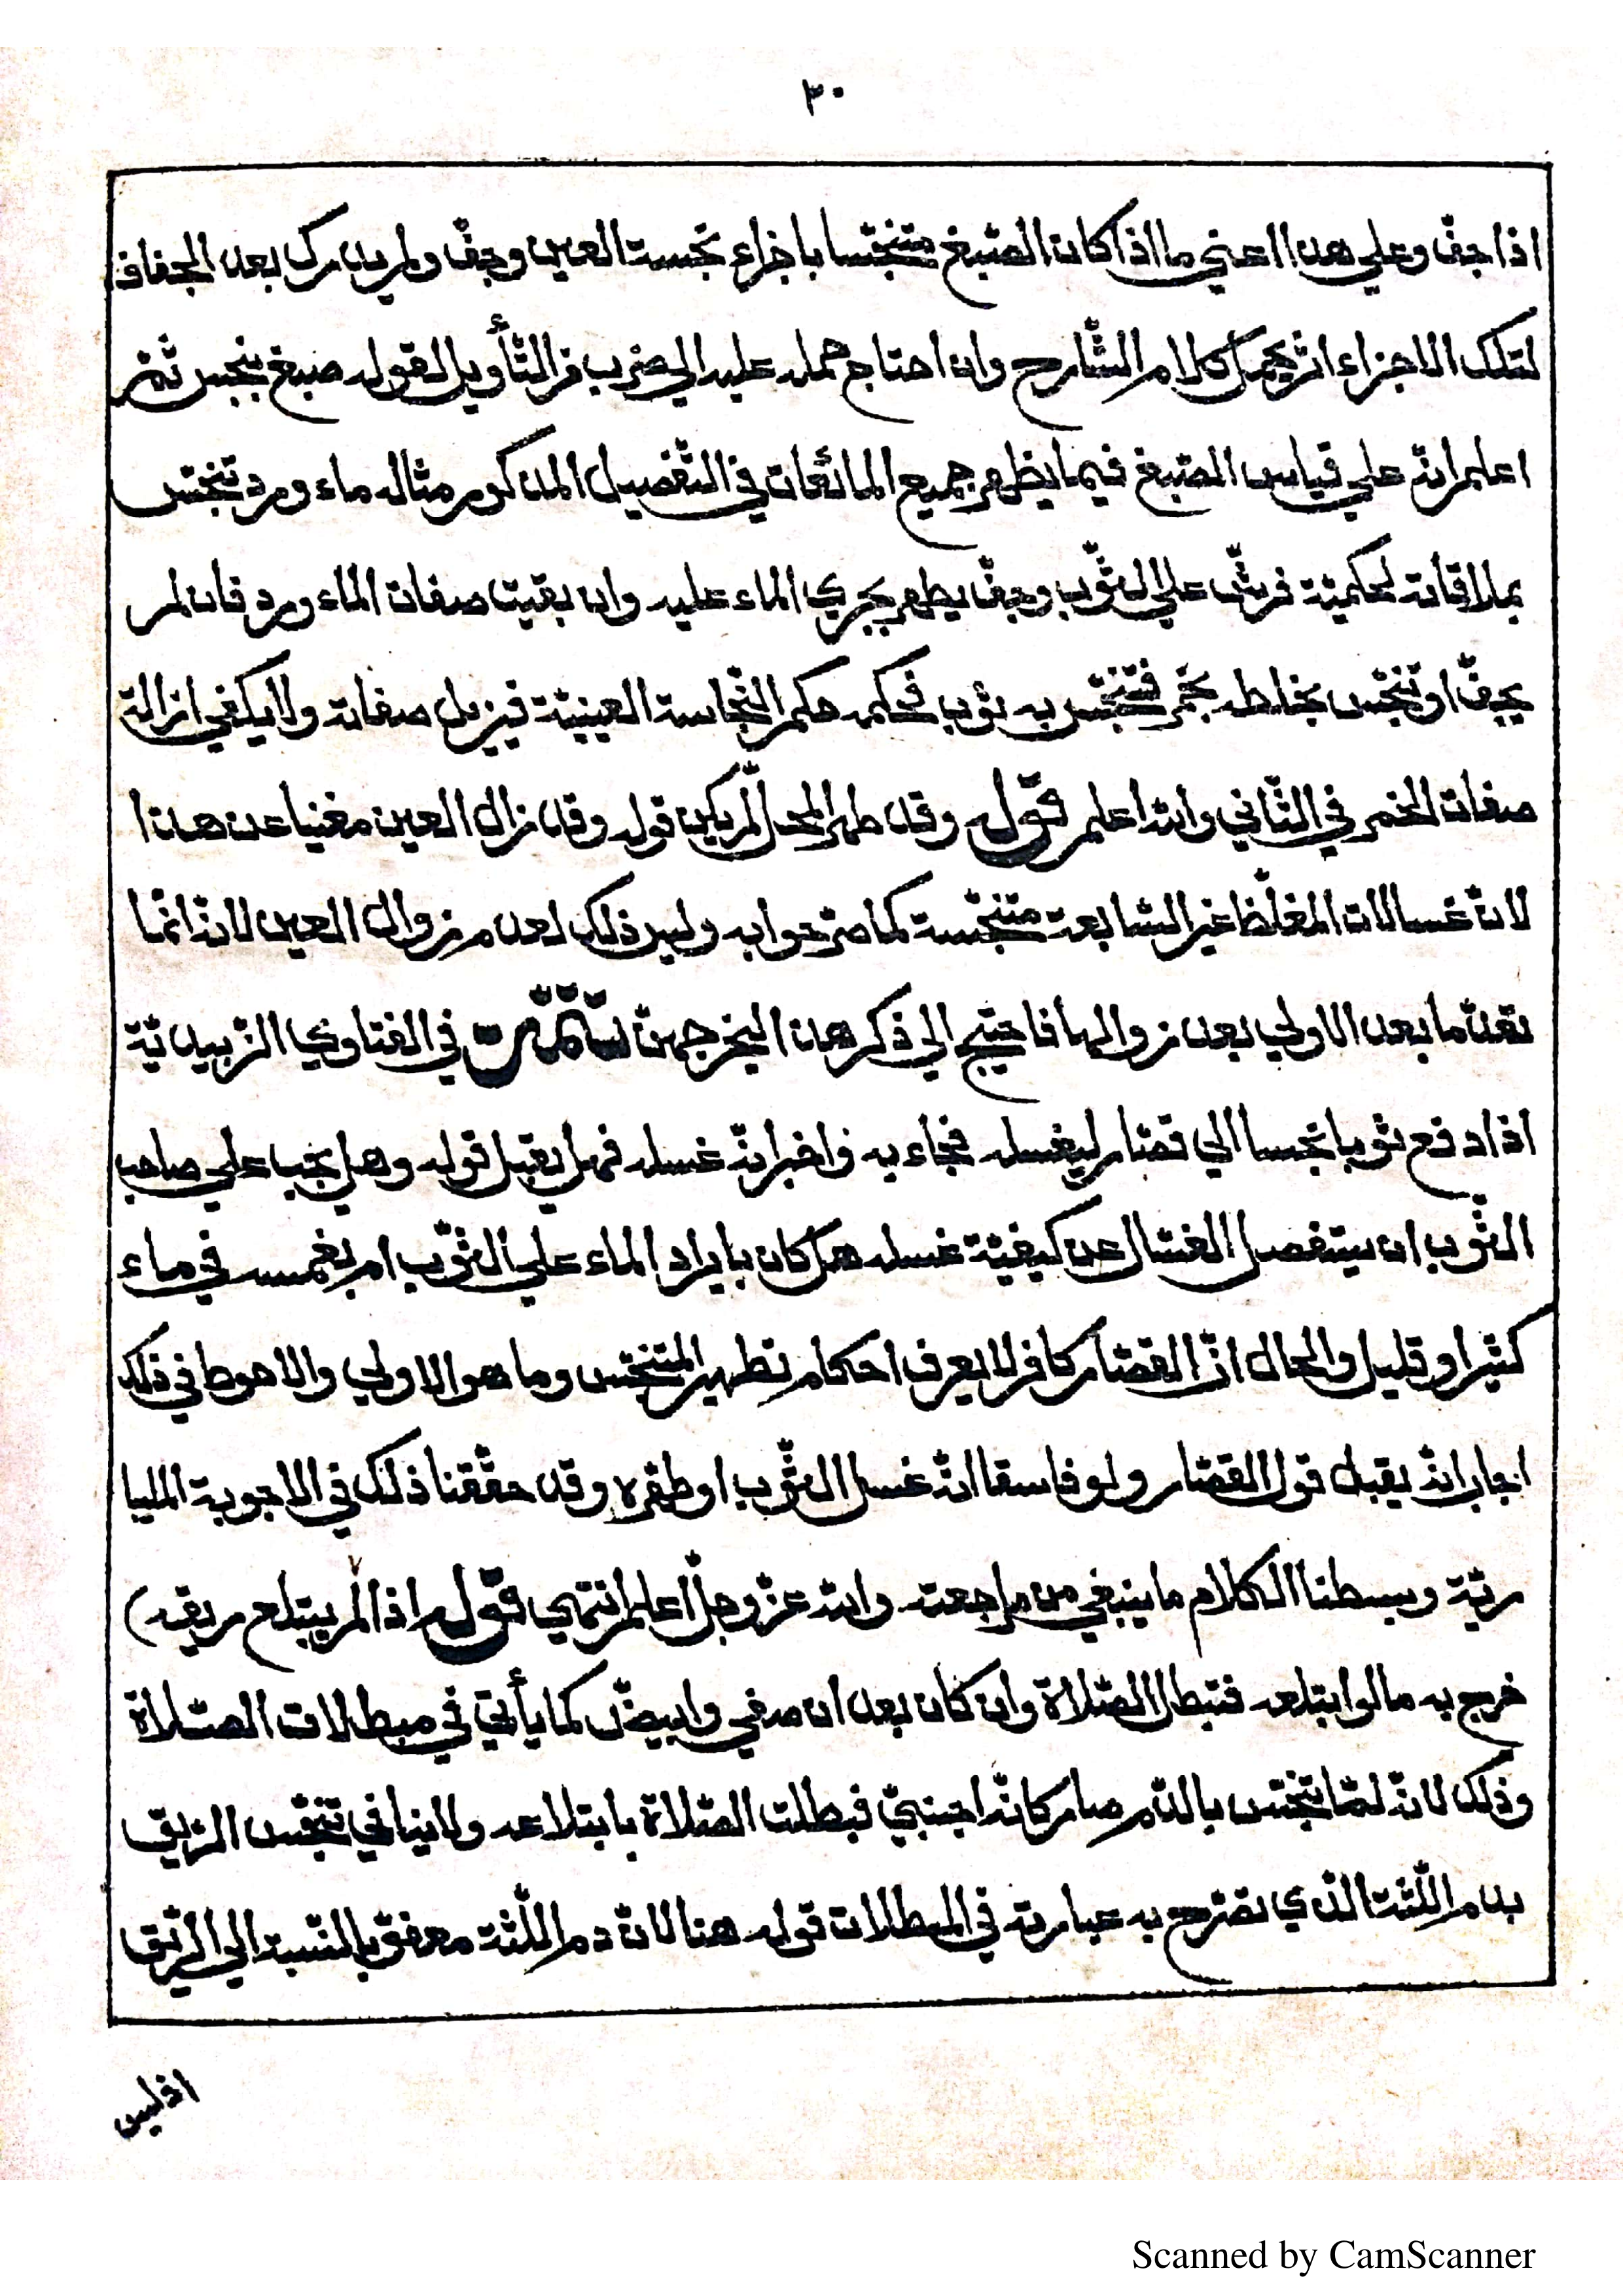 ٣٠
اذا جفّ وعلي هذا اعني ما اذا كان الصّبغ متنجّسا باجزاء نجسة العين وجفّ ولم يدرك بعد الجفاف
لتلك الاجزاء اثر يحمل كلام الشّارح وان احتاج حمله عليه الي ضرب من التأويل لقوله صبغ بنجس ثمّ
اعلم انّه علي قياس الصّبغ فيما يظهر جميع المائعات في التّفصيل المذكور مثاله ماء ورد تنجّس
بملاقاته لحكميّة فرشّ علي الثّوب وجفّ يطهر بجري الماء عليه وان بقيت صفات الماء ورد فان لم
يجفّ او تنجّس بخلطه بخمر فتنجّس به ثوب فحكمه حكم النّجاسة العينيّة فيزيل صفاته ولا يكفي ازالة
صفات الخمر في الثّاني والله اعلم قوله وقد طهر المحلّ لم يكن قوله وقد زال العين مغنيا عن هذا
لانّ غسالات المغلّظ غير السّابعة متنجّسة كما مرّ جوابه وليس ذلك لعدم زوال العين لانّه انّما
تعدّ ما بعد الاولي بعد زوالها فاحتيج الي ذكر هذا ليخرجهنّ تتمّة في الفتاوي الزّبيديّة
اذا دفع ثوبا نجسا الي قصّار ليغسله فجاء به واخبر انّه غسله فهل يقبل قوله وهل يجب علي صاحب
الثّوب ان يستفصل الغسّال عن كيفيّة غسله هل كان بايراد الماء علي الثّوب ام بغمسه في ماء
كثير او قليل والحال انّ القصّار كافر لا يعرف احكام تطهير المتنجّس وما هو الاولي والاحوط في ذلك
اجاب انّه يقبل قول القصّار ولو فاسقا انّه غسل الثّوب او طهّره وقد حقّقنا ذلك في الاجوبة المليبا
ريّة وبسطنا الكلام ما ينبغي من مراجعته والله عزّ وجلّ اعلم انتهي قوله اذا لم يبتلع ريقه)
خرج به ما لو ابتلعه فتبطل الصّلاة وان كان بعد ان صفي وابيضّ كما يأتي في مبطلات الصّلاة
وذلك لانّه لمّا تنجّس بالدّم صار كانّه اجنبيّ فبطلت الصّلاة بابتلاعه ولا ينافي تنجّس الرّيق
بدم اللّثة الّذي تصرّح به عبارته في المبطلات قوله هنا لانّ دم اللّثة معفوّ بالنّسبة الي الرّيق
اذ ليس
Scanned by CamScanner